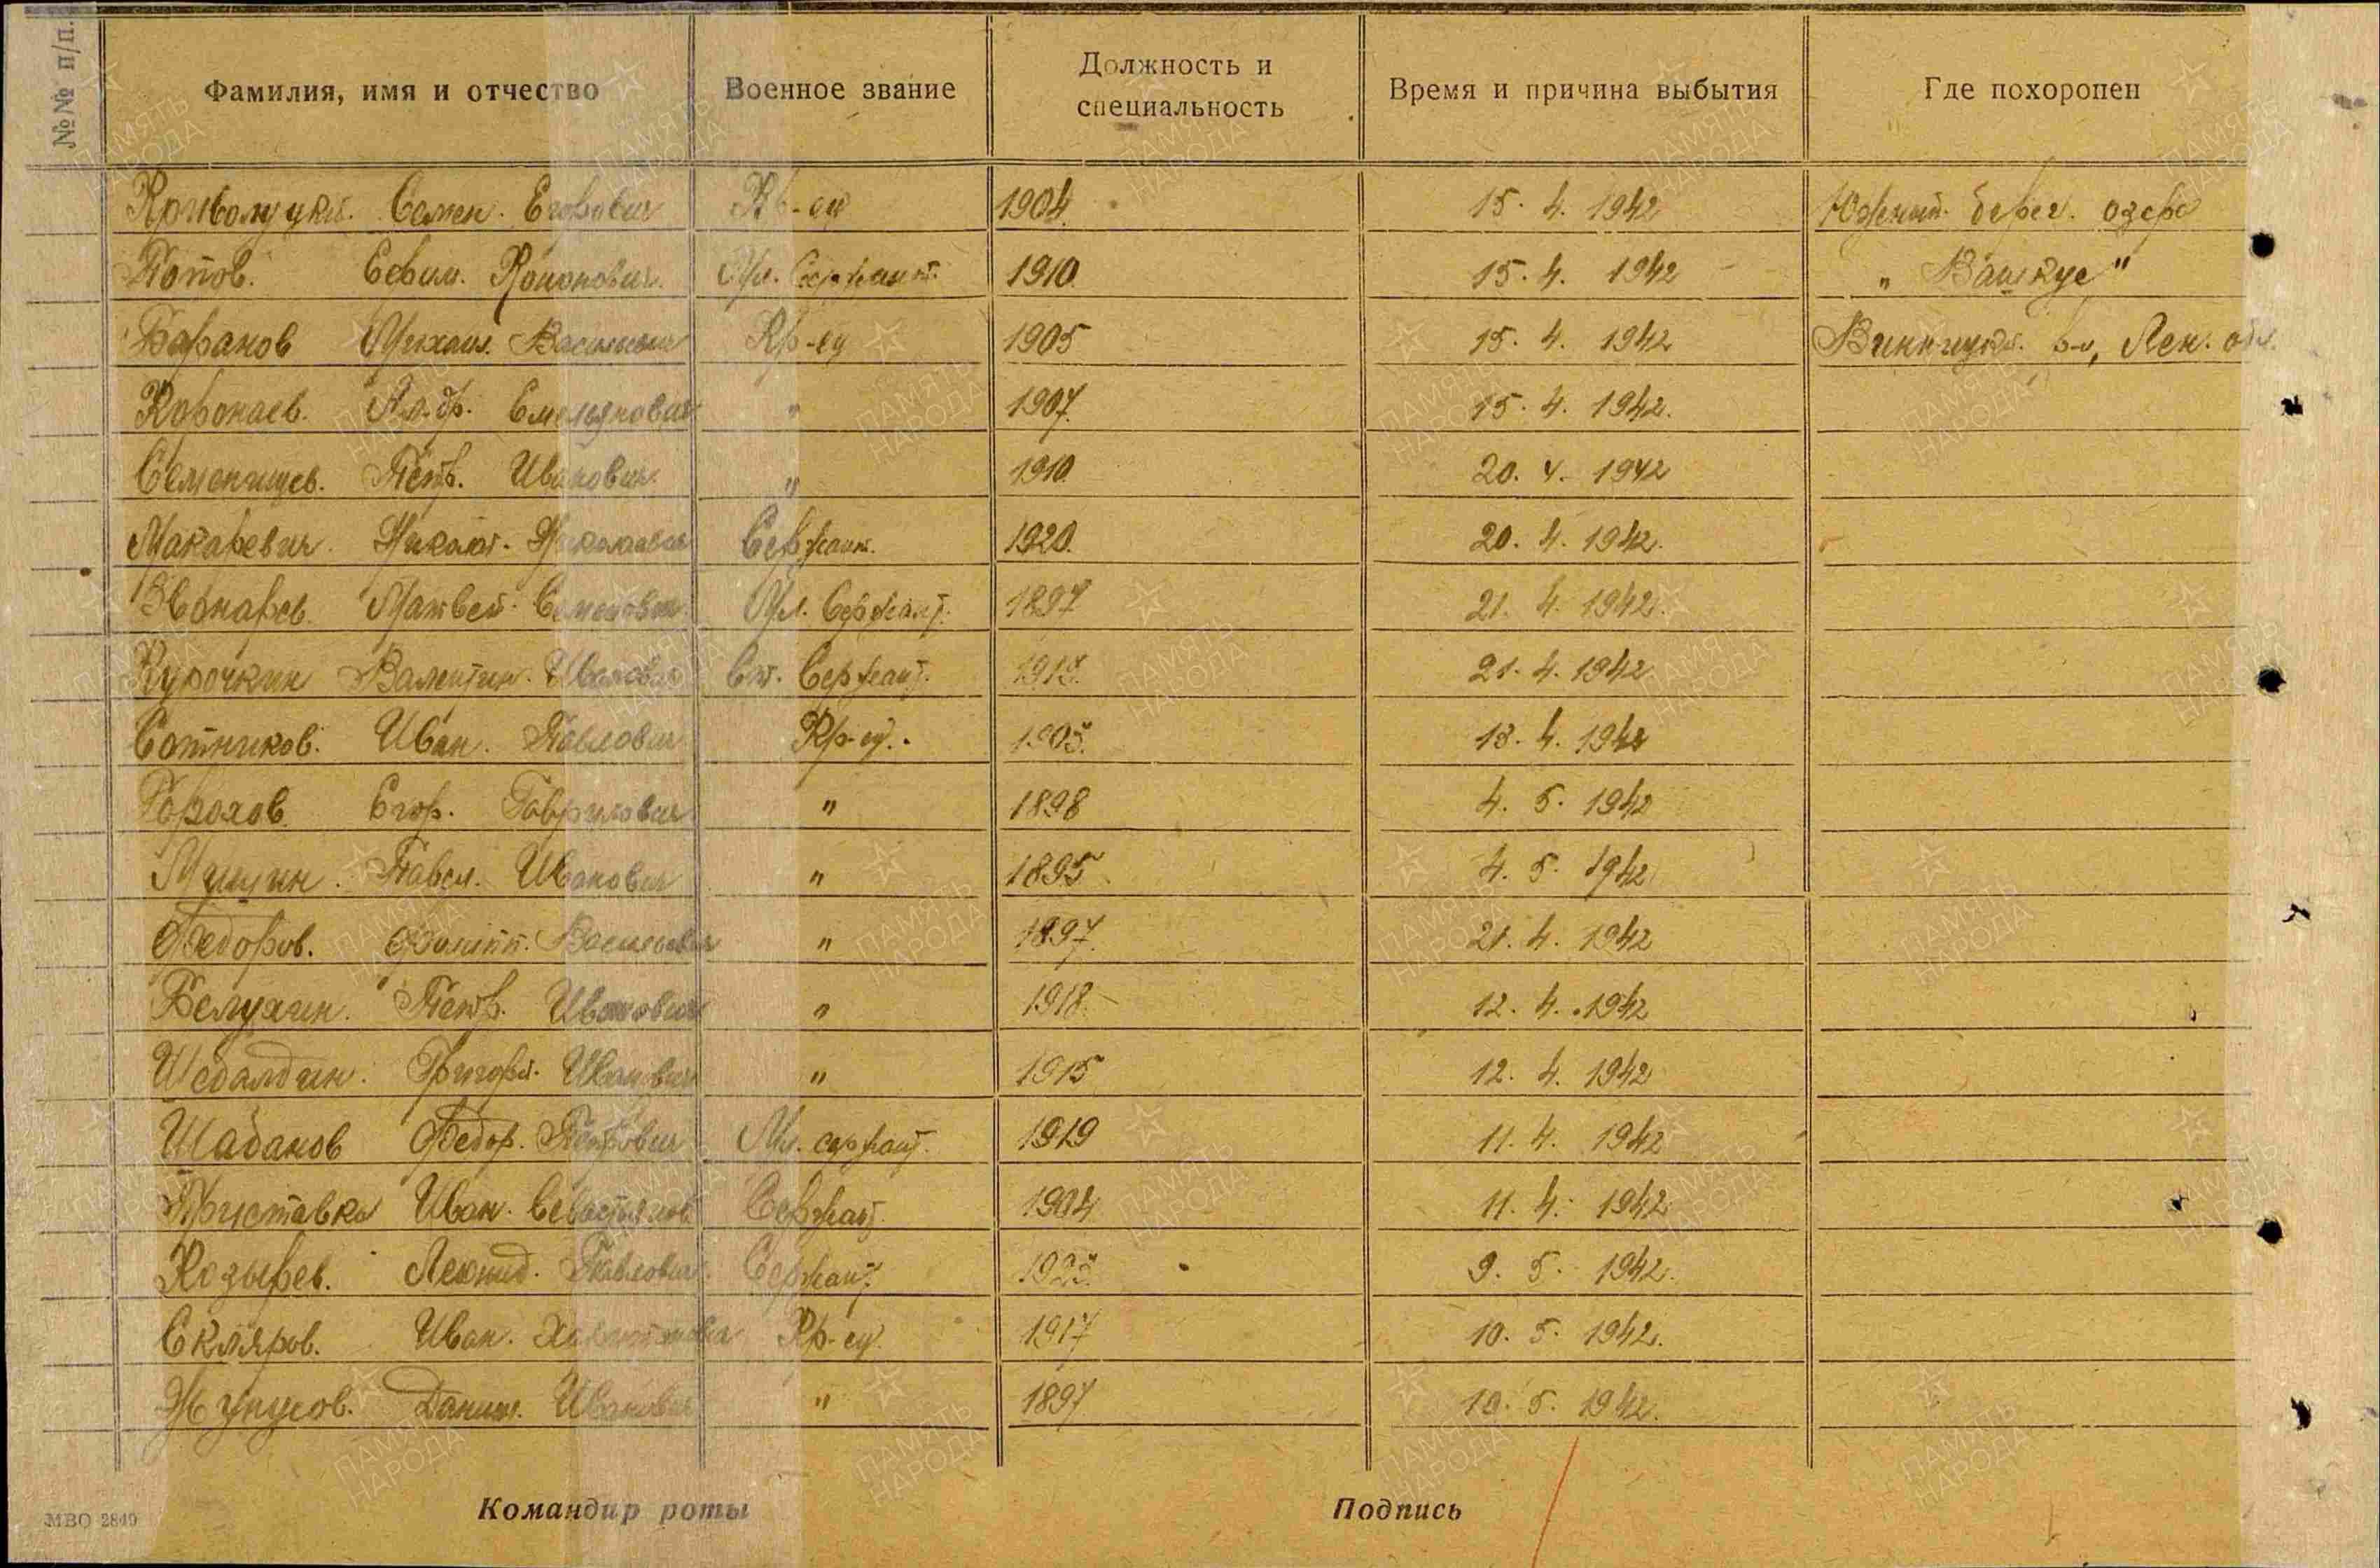 №№ п/п.
Фамилия, имя и отчество Военное звание Должность и специальность Время и причина выбытия Где похоронен
Криволуцкий. Семен. Егорович Кр-ец 1904 15. 4. 1942 Южный. берег. озера
Попов. Ефим. Кононович. Мл. Сержант. 1910 15. 4. 1942 „Вашкус"
Баранов Михаил. Васильевич Кр-ец 1905 15. 4. 1942 Винницкий. р-н, Лен. обл.
Коронаев. Ал-др. Емельянович " 1907 15. 4. 1942.
Семенищев. Петр. Иванович " 1910 20. 4. 1942
Макаревич. Николай. Николаевич Сержант. 1920. 20. 4. 1942.
Звонарев. Матвей. Семенович Мл. Сержант. 1897 21. 4. 1942.
Курочкин Валентин. Иванович Ст. Сержант. 21. 4. 1942
Сотников. Иван. Павлович Кр-ец. 1905. 13. 4. 1942
Горохов. Егор. Гаврилович " 1898 4. 5. 1942
Мушин. Павел. Иванович " 1895 4. 5. 1942
Федоров. Филипп. Васильевич " 1897 21. 4. 1942
Белухин. Петр. Иванович " 1918 12. 4. 1942
Шебалдин. Григорий. Иванович " 1915 12. 4. 1942
Шабанов Федор. Петрович Мл. сержант. 1919 11. 4. 1942
Приставка Иван. Севастьянов. Сержант. 1904 11. 4. 1942
Козырев. Леонид. Павлович. Сержант. 9. 5. 1942.
Скляров. Иван. Кр-ец 1917 10. 5. 1942.
Даниил. Иванович " 1897 10. 5. 1942.
МВО 2849
Командир роты Подпись
ПАМЯТЬ НАРОДА